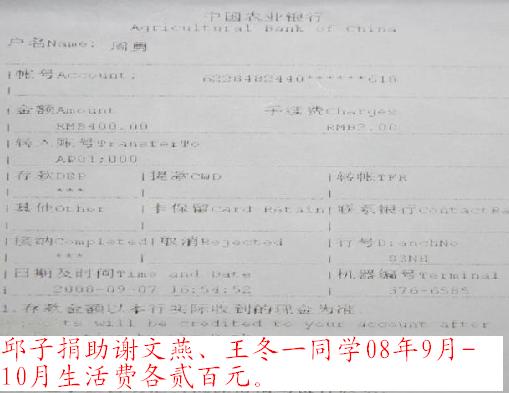 中国农业银行
Agricultural Bank of China
户名Name: 周勇
帐号Account: 6228482440******618
金额Amount 手续费Charges
RMB400.00 RMB2.00
转入账号TransferTo
AD01:000
存款DEP 提款CWD 转帐TFR
***
其他Other 卡保留Card Retain 联系银行ContactBa
接纳Completed 取消Rejected 行号BranchNo
*** 03NH
日期及时间Time and Date 机器编号Terminal
2008-09-07 16:54:52 376*6585
1.存款金额以本行实际收到的现金为准
will be credited to your account after
邱子捐助谢文燕、王冬一同学08年9月-
10月生活费各贰百元。